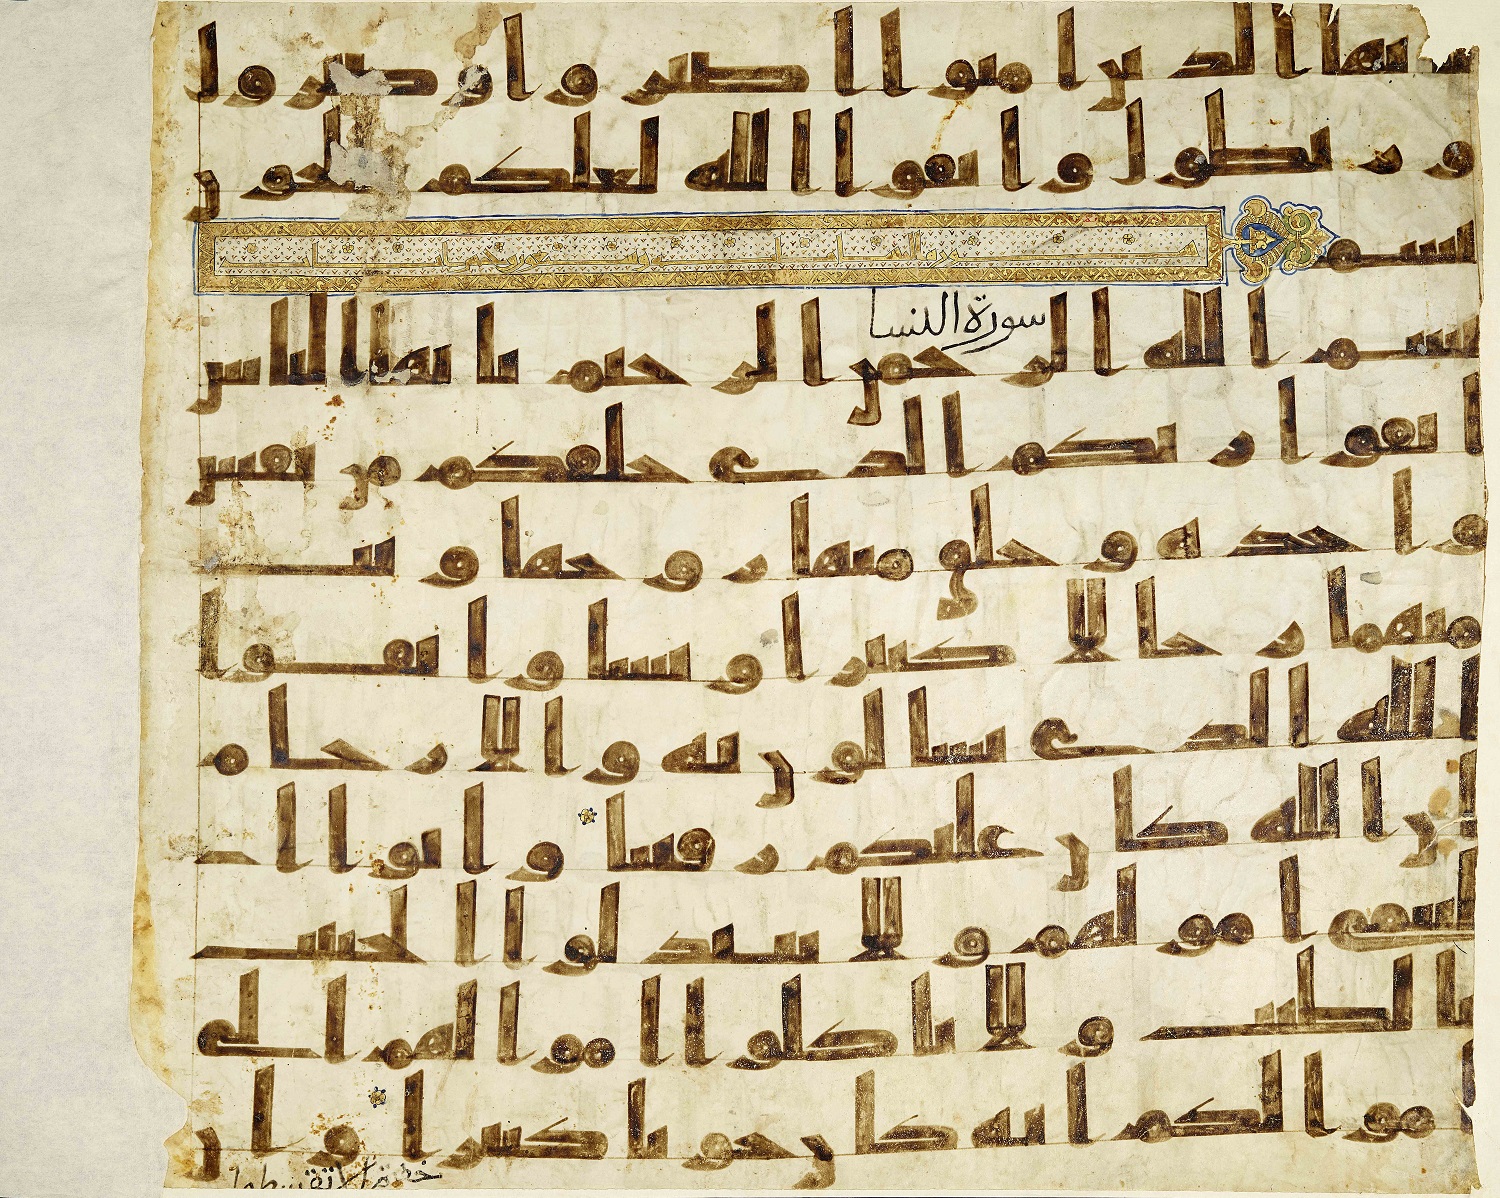 يايها الذين امنوا اصبروا وصبروا
وربطوا واتقوا الله لعلكم تفلحون
سورة النسا
بسم الله الرحمن الرحيم يايها الناس
اتقوا ربكم الذي خلقكم من نفس
واحده وخلق منها زوجها وبث
منهما رجالا كثيرا ونسا واتقوا
الله الذي تسالون به والارحام
ان الله كان عليكم رقيبا واتوا اليـ
ـتمى امولهم ولا تتبدلوا الخبيث
بالطيب ولا تاكلوا امولهم الى
امولكم انه كان حوبا كبيرا وان
خفتم الا تقسطوا